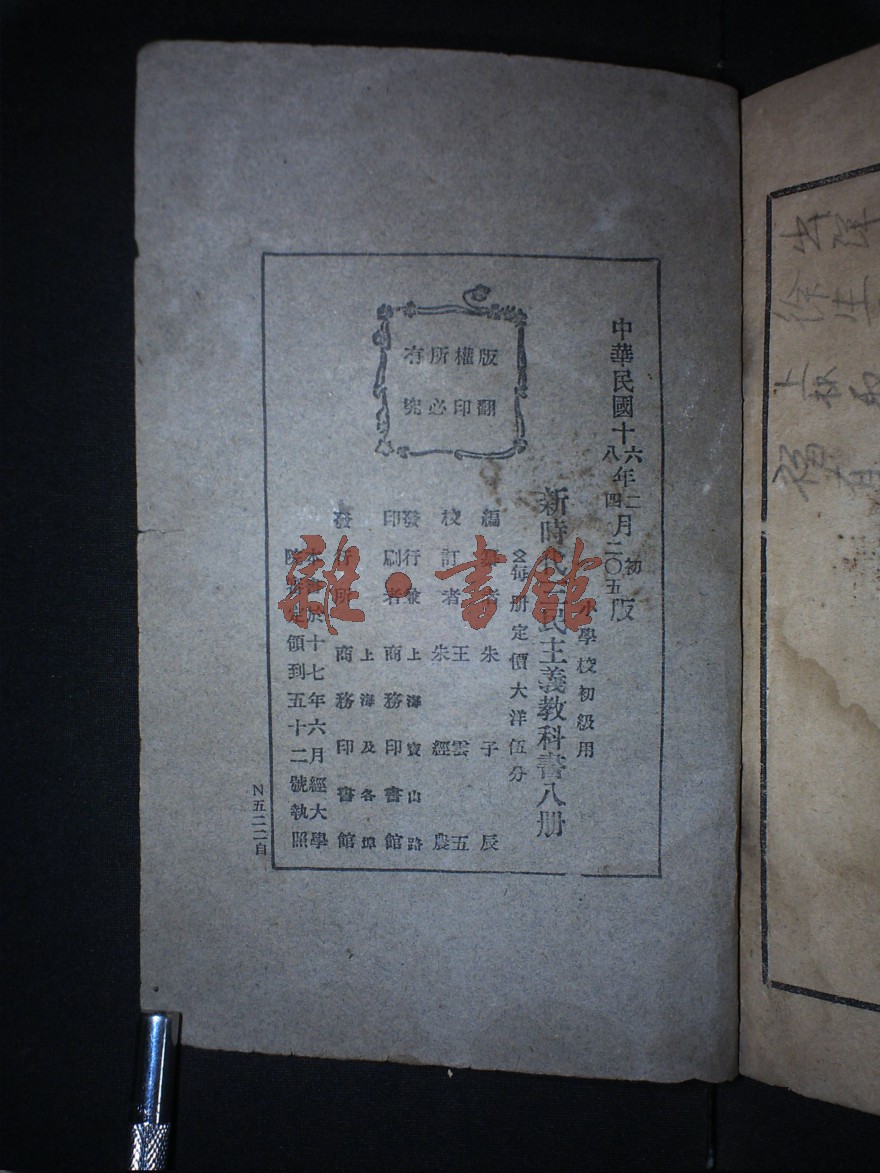 中華民國十六年二月初版
八四二〇五
小學校初級用
新時代三民主義教科書八册
每册定價大洋伍分
版權所有
翻印必究
編纂者 朱子辰
校訂者 王雲五
朱經農
發行兼 上海寶山路
印刷者 商務印書館
上海及各埠
發行所 商務印書館
本書於十七年六月經大學
院審定領到五十二號執照
N五二二自
雜·書館